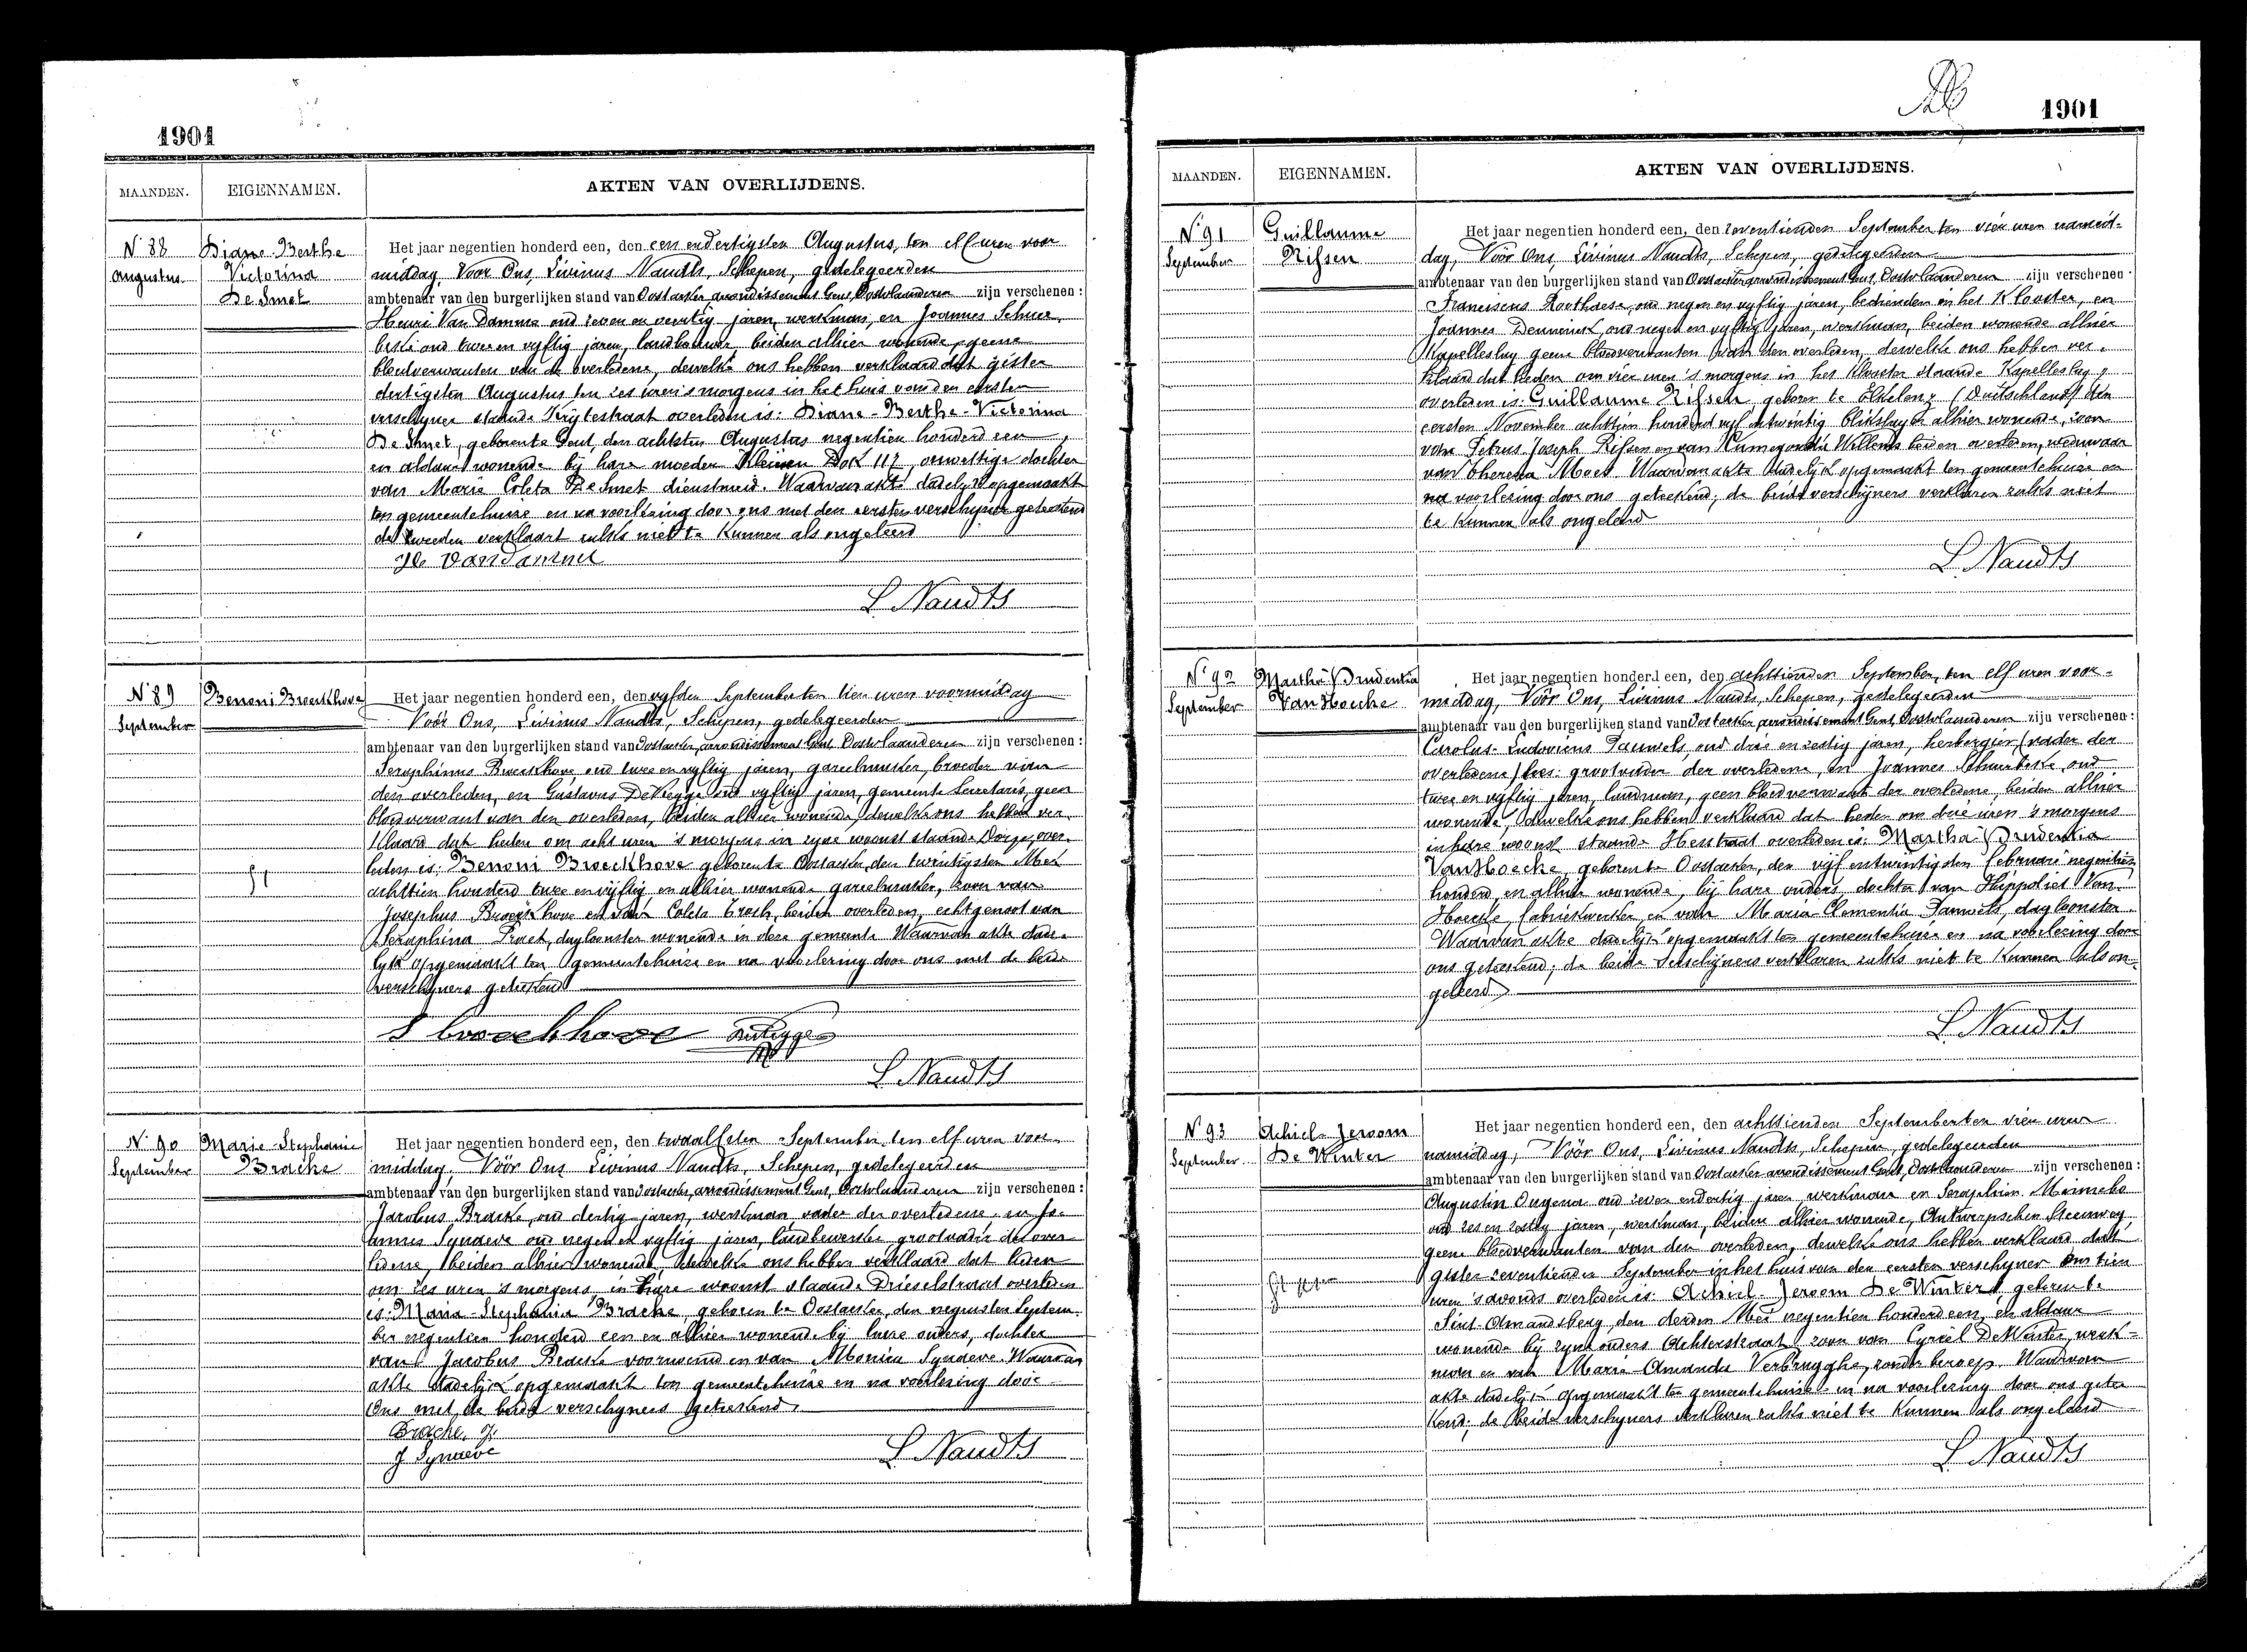 1901
MAANDEN. EIGENNAMEN. AKTEN VAN OVERLIJDENS.
N. 88
Augustus
Diane-Berthe
Victorina
De Smet
Het jaar negentien honderd een, den een en dertigsten Augustus, ten elf uren voor
middag, Voor Ons, Livinus Naudts, Schepen, gedelegeerden
ambtenaar van den burgerlijken stand van Oostacker, arrondissement Gent, Oostvlaanderen zijn verschenen:
Henri Van Damme oud zeven en veertig jaren, werkman, en Joannes Schuer-
beke oud twee en vyftig jaren, landbouwer, beiden alhier wonende, geene
bloedverwanten van de overledene, dewelke ons hebben verklaard dat gister
dertigsten Augustus ten zes uren 's morgens in het huis van den eersten
verschyner staande Krijtestraat overleden is: Diane-Berthe-Victorina
De Smet, geboren te Gent, den achtsten Augustus negentien honderd een
en aldaar wonende bij hare moeder Kleinen Dok 117, onwettige dochter
van Marie Coleta De Smet dienstmeid. Waarvan akte dadelyk opgemaakt
ten gemeentehuize en na voorlezing door ons met den eersten verschijner geteekend
de tweeden verklaart zulks niet te kunnen als ongeleerd
H. Vandamme
L. Naudts
N. 89
September
Benoni Broeckhove
Het jaar negentien honderd een, den vyfden September ten tien uren voormiddag
Vóór Ons, Livinus Naudts, Schepen, gedelegeerden
ambtenaar van den burgerlijken stand van Oostacker, arrondissement Gent, Oostvlaanderen zijn verschenen:
Seraphinus Broeckhove oud twee en vyftig jaren, gareelmaker, broeder van
den overleden, en Gustavus De Vlegge oud vyftig jaren, gemeente Secretaris, geen
bloedverwant van den overleden, beiden alhier wonende, dewelke ons hebben ver-
klaard dat heden om acht uren 's morgens in zyne woonst staande Dorp, over-
leden is: Benoni Broeckhove geboren te Oostacker, den twintigsten Mei
achttien honderd twee en vijftig en alhier wonende gareelmaker, zoon van
Josephus Broeckhove en van Coleta Troch, beiden overleden, echtgenoot van
Seraphina Praet, dagloonster wonende in deze gemeente. Waarvan akte dade-
lyk opgemaakt ten gemeentehuize en na voorlezing door ons met de beide
verschyners geteekend
S broeckhove
L. Naudts
N. 90
September
Marie Stephanie
Bracke
Het jaar negentien honderd een, den twaalfsten September, ten elf uren voor-
middag, Vóór Ons Livinus Naudts, Schepen, gedelegeerden
ambtenaar van den burgerlijken stand van Oostacker, arrondissement Gent, Oostvlaanderen zijn verschenen:
Jacobus Bracke, oud dertig jaren, werkman, vader der overledene, en Jo-
annes Synaeve oud negen en vyftig jaren, landbewerker grootvader der over-
ledene, beiden alhier wonende, dewelke ons hebben verklaard dat heden
om zes uren 's morgens, in hare woonst staande Drieselstraat overleden
is: Maria-Stephania Bracke, geboren te Oostacker, den negensten Septem-
ber negentien honderd een en alhier wonende bij hare ouders, dochter
van Jacobus Bracke voornoemd en van Monica Synaeve. Waarvan
akte dadelijk opgemaakt ten gemeentehuize en na voorlezing door
Ons met de beide verschyners geteekend.
Bracke, J.
J Synaeve
L. Naudts
1901
MAANDEN. EIGENNAMEN. AKTEN VAN OVERLIJDENS.
N. 91
September
Guillaume
Rissen
Het jaar negentien honderd een, den zeventienden September ten vier uren namid-
dag, Vóór Ons, Livinus Naudts, Schepen, gedelegeerden
ambtenaar van den burgerlijken stand van Oostacker, arrondissement Gent, Oostvlaanderen zijn verschenen:
Franciscus Roothaese, oud negen en vyftig jaren, bediende in het Klooster, en
Joannes oud negen en vyftig jaren, werkman, beiden wonende alhier
Kapelleslag geene bloedverwanten van den overleden, dewelke ons hebben ver-
klaard dat heden om vier uren 's morgens in het Klooster staande Kapelleslag,
overleden is: Guillaume Rissen geboren te Elkelenz (Duitschland) den
eersten November achttien honderd vyf en twintig blikslager alhier wonende, zoon
van Petrus Joseph Rissen en van Cunegonda Willems beiden overleden, weduwaar
van Theresia Moes. Waarvan akte dadelijk opgemaakt ten gemeentehuize en
na voorlezing door ons geteekend, de beide verschijners verklaren zulks niet
te kunnen als ongeleerd
L. Naudts
N. 92
September
Martha Prudentia
Van Hoecke
Het jaar negentien honderd een, den achttienden September, ten elf uren voor-
middag, Vóór Ons, Livinus Naudts, Schepen, gedelegeerden
ambtenaar van den burgerlijken stand van Oostacker arrondissement Gent, Oostvlaanderen zijn verschenen:
Carolus-Ludovicus Pauwels oud drie en zestig jaren, herbergier, (vader der
overledene) lees: grootvader der overledene, en Joannes Schuerbeke, oud
twee en vyftig jaren, landman, geen bloedverwant der overledene, beiden alhier
wonende, dewelke ons hebben verklaard dat heden om drie uren 's morgens
in hare woonst staande Hesstraat overleden is: Martha Prudentia
Van Hoecke, geboren te Oostacker, den vijf en twintigsten februari negentien
honderd, en alhier wonende, bij hare ouders, dochter van Hippoliet Van
Hoecke, fabriekwerker, en van Maria-Clementia Pauwels, dagloonster.
Waarvan akte dadelijk opgemaakt ten gemeentehuize en na voorlezing door
ons geteekend; de beide verschijners verklaren zulks niet te kunnen als on-
geleerd
L. Naudts
N. 93
September
Achiel-Jeroom
De Winter
Het jaar negentien honderd een, den achttienden September ten vier uren
namiddag, Vóór Ons, Livinus Naudts, Schepen, gedelegeerden
ambtenaar van den burgerlijken stand van Oostacker arrondissement Gent, Oostvlaanderen zijn verschenen:
Augustin Ongena oud zeven en dertig jaren, werkman en Seraphien Minnebo
oud zes en zestig jaren, werkman, beiden alhier wonende, Antwerpschen Steenweg,
geene bloedverwanten van den overleden, dewelke ons hebben verklaard dat
gister zeventienden September in het huis van den eersten verschyner om tien
uren 's avonds overleden is Achiel-Jeroom De Winter, geboren te
Sint-Amandsberg, den derden Mei negentien honderd een, en aldaar
wonende bij zyne ouders Achterstraat, zoon van Cyriel De Winter, werk-
man en van Marie-Amanda Verbrugghe, zonder beroep. Waarvan
akte dadelijk opgemaakt ten gemeentehuize en na voorlezing door ons getee-
kend; de beide verschyners verklaren zulks niet te kunnen als ongeleerd
L. Naudts